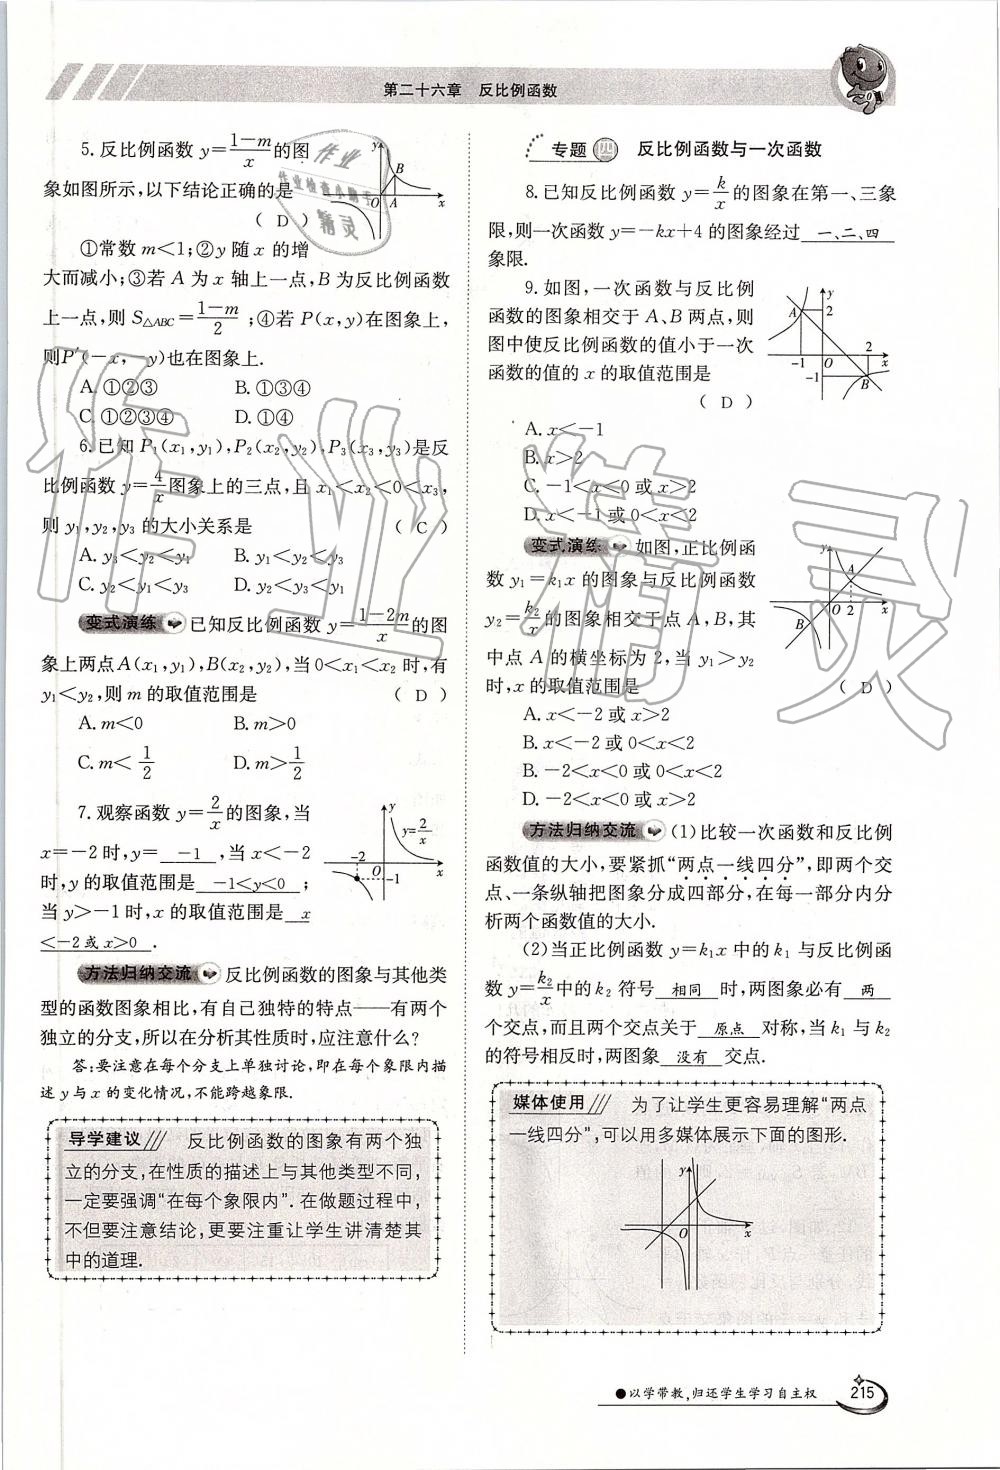 第二十六章 反比例函数
5.反比例函数 y=(1-m)/x 的图
象如图所示,以下结论正确的是
( D )
①常数 m<1;②y 随 x 的增
大而减小;③若 A 为 x 轴上一点,B 为反比例函数
上一点,则 S△ABC=(1-m)/2;④若 P(x,y)在图象上,
则P′(-x,-y)也在图象上.
A.①②③ B.①③④
C.①②③④ D.①④
6.已知 P₁(x₁,y₁),P₂(x₂,y₂),P₃(x₃,y₃)是反
比例函数 y=4/x 图象上的三点,且 x₁<x₂<0<x₃,
则 y₁,y₂,y₃ 的大小关系是 ( C )
A. y₃<y₂<y₁ B. y₁<y₂<y₃
C. y₂<y₁<y₃ D. y₂<y₃<y₁
变式演练 已知反比例函数 y=(1-2m)/x 的图
象上两点A(x₁,y₁),B(x₂,y₂),当0<x₁<x₂ 时,有
y₁<y₂,则 m 的取值范围是 ( D )
A. m<0 B. m>0
C. m<1/2 D. m>1/2
7.观察函数 y=2/x 的图象,当
x=-2 时,y= -1 ,当 x<-2
时,y 的取值范围是 -1<y<0 ;
当 y>-1 时,x 的取值范围是 x
<-2 或 x>0 .
方法归纳交流 反比例函数的图象与其他类
型的函数图象相比,有自己独特的特点——有两个
独立的分支,所以在分析其性质时,应注意什么?
答:要注意在每个分支上单独讨论,即在每个象限内描
述 y 与 x 的变化情况,不能跨越象限.
导学建议 反比例函数的图象有两个独
立的分支,在性质的描述上与其他类型不同,
一定要强调“在每个象限内”.在做题过程中,
不但要注意结论,更要注重让学生讲清楚其
中的道理.
y
B
O A x
y
y=2/x
-2
O -1 x
专题 四 反比例函数与一次函数
8.已知反比例函数 y=k/x 的图象在第一、三象
限,则一次函数 y=-kx+4 的图象经过 一、二、四
象限.
9.如图,一次函数与反比例
函数的图象相交于 A、B 两点,则
图中使反比例函数的值小于一次
函数的值的 x 的取值范围是
( D )
A. x<-1
B. x>2
C. -1<x<0 或 x>2
D. x<-1 或 0<x<2
y
A 2
-1 O 2 x
-1 B
变式演练 如图,正比例函
数 y₁=k₁x 的图象与反比例函数
y₂=k₂/x 的图象相交于点 A,B,其
中点 A 的横坐标为 2,当 y₁>y₂
时,x 的取值范围是 ( D )
A. x<-2 或 x>2
B. x<-2 或 0<x<2
C. -2<x<0 或 0<x<2
D. -2<x<0 或 x>2
y
A
O 2 x
B
方法归纳交流 (1)比较一次函数和反比例
函数值的大小,要紧抓“两点一线四分”,即两个交
点、一条纵轴把图象分成四部分,在每一部分内分
析两个函数值的大小.
(2)当正比例函数 y=k₁x 中的 k₁ 与反比例函
数 y=k₂/x 中的 k₂ 符号 相同 时,两图象必有 两
个交点,而且两个交点关于 原点 对称,当 k₁ 与 k₂
的符号相反时,两图象 没有 交点.
媒体使用 为了让学生更容易理解“两点
一线四分”,可以用多媒体展示下面的图形.
y
O x
●以学带教,归还学生学习自主权 215
作业
作业检查小助手
精灵
作业精灵